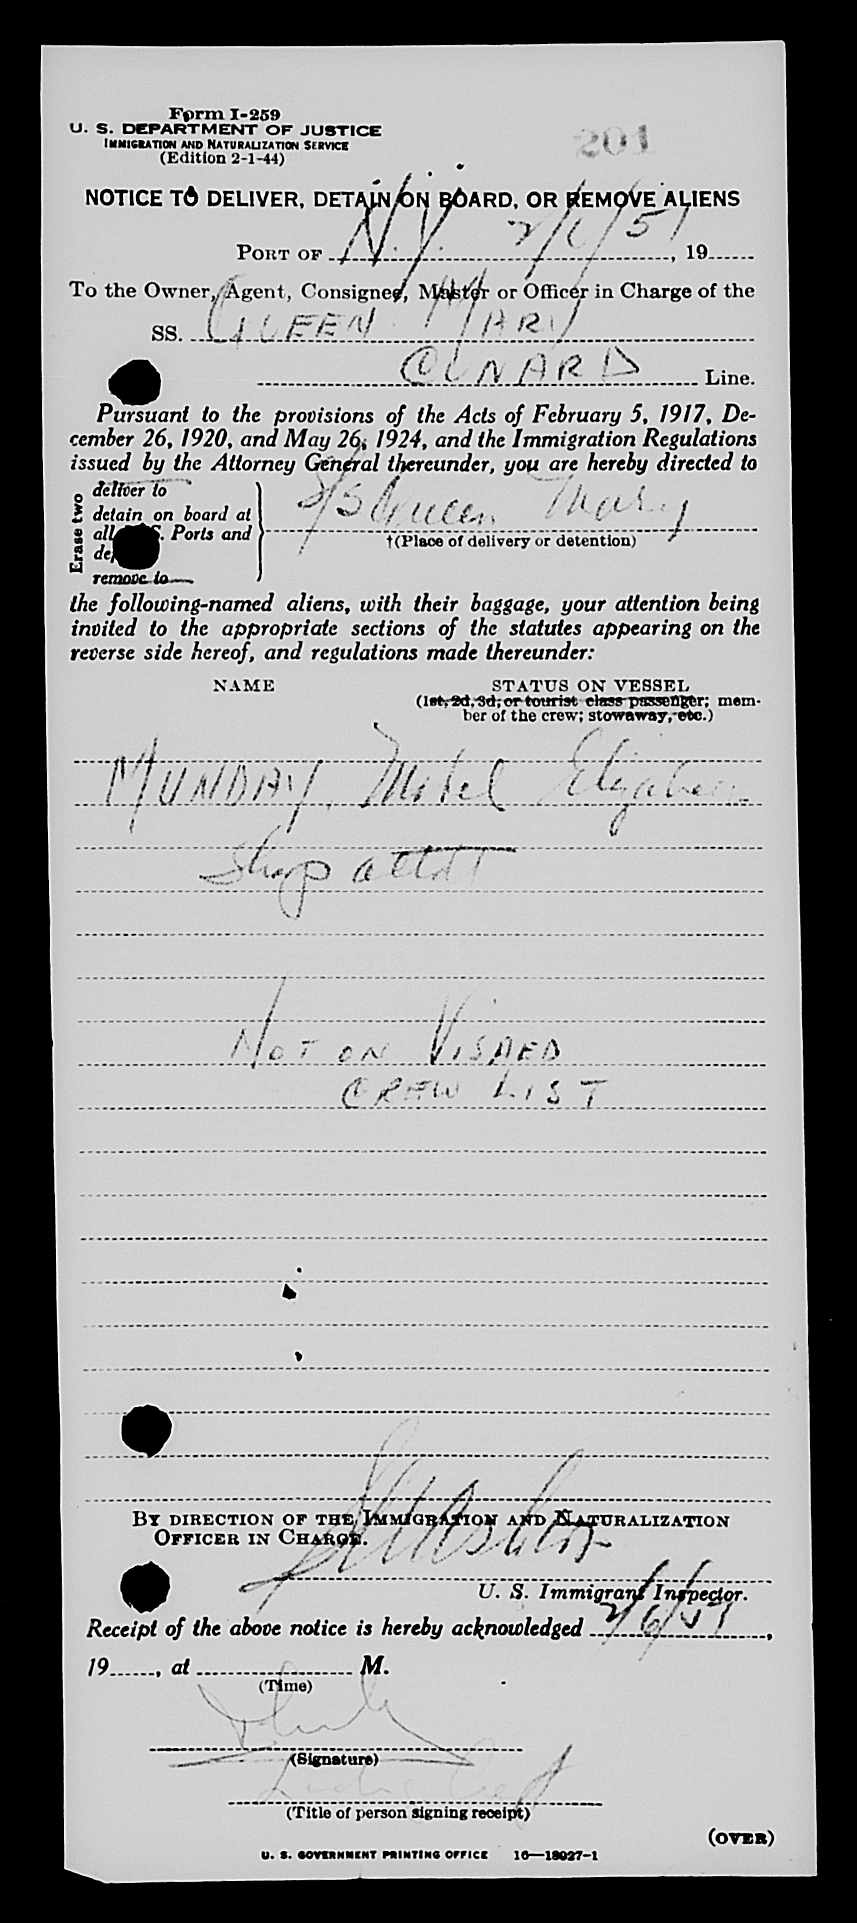 Form I-259
U. S. DEPARTMENT OF JUSTICE
IMMIGRATION AND NATURALIZATION SERVICE
(Edition 2-1-44)
201
NOTICE TO DELIVER, DETAIN ON BOARD, OR REMOVE ALIENS
PORT OF N.Y. 2/6/51, 19
To the Owner, Agent, Consignee, Master or Officer in Charge of the
SS. QUEEN MARY
CUNARD Line.
Pursuant to the provisions of the Acts of February 5, 1917, De-
cember 26, 1920, and May 26, 1924, and the Immigration Regulations
issued by the Attorney General thereunder, you are hereby directed to
Erase two
deliver to
detain on board at
all U. S. Ports and
remove to
S/S Queen Mary
†(Place of delivery or detention)
the following-named aliens, with their baggage, your attention being
invited to the appropriate sections of the statutes appearing on the
reverse side hereof, and regulations made thereunder:
NAME STATUS ON VESSEL
(1st, 2d, 3d, or tourist class passenger; mem-
ber of the crew; stowaway, etc.)
MUNDAY, Mabel Elizabeth
Shop attdt
NOT ON VISAED
CREW LIST
BY DIRECTION OF THE IMMIGRATION AND NATURALIZATION
OFFICER IN CHARGE.
U. S. Immigrant Inspector.
Receipt of the above notice is hereby acknowledged 2/6/51,
19, at M.
(Time)
(Signature)
(Title of person signing receipt)
(OVER)
U. S. GOVERNMENT PRINTING OFFICE 16—18027-1